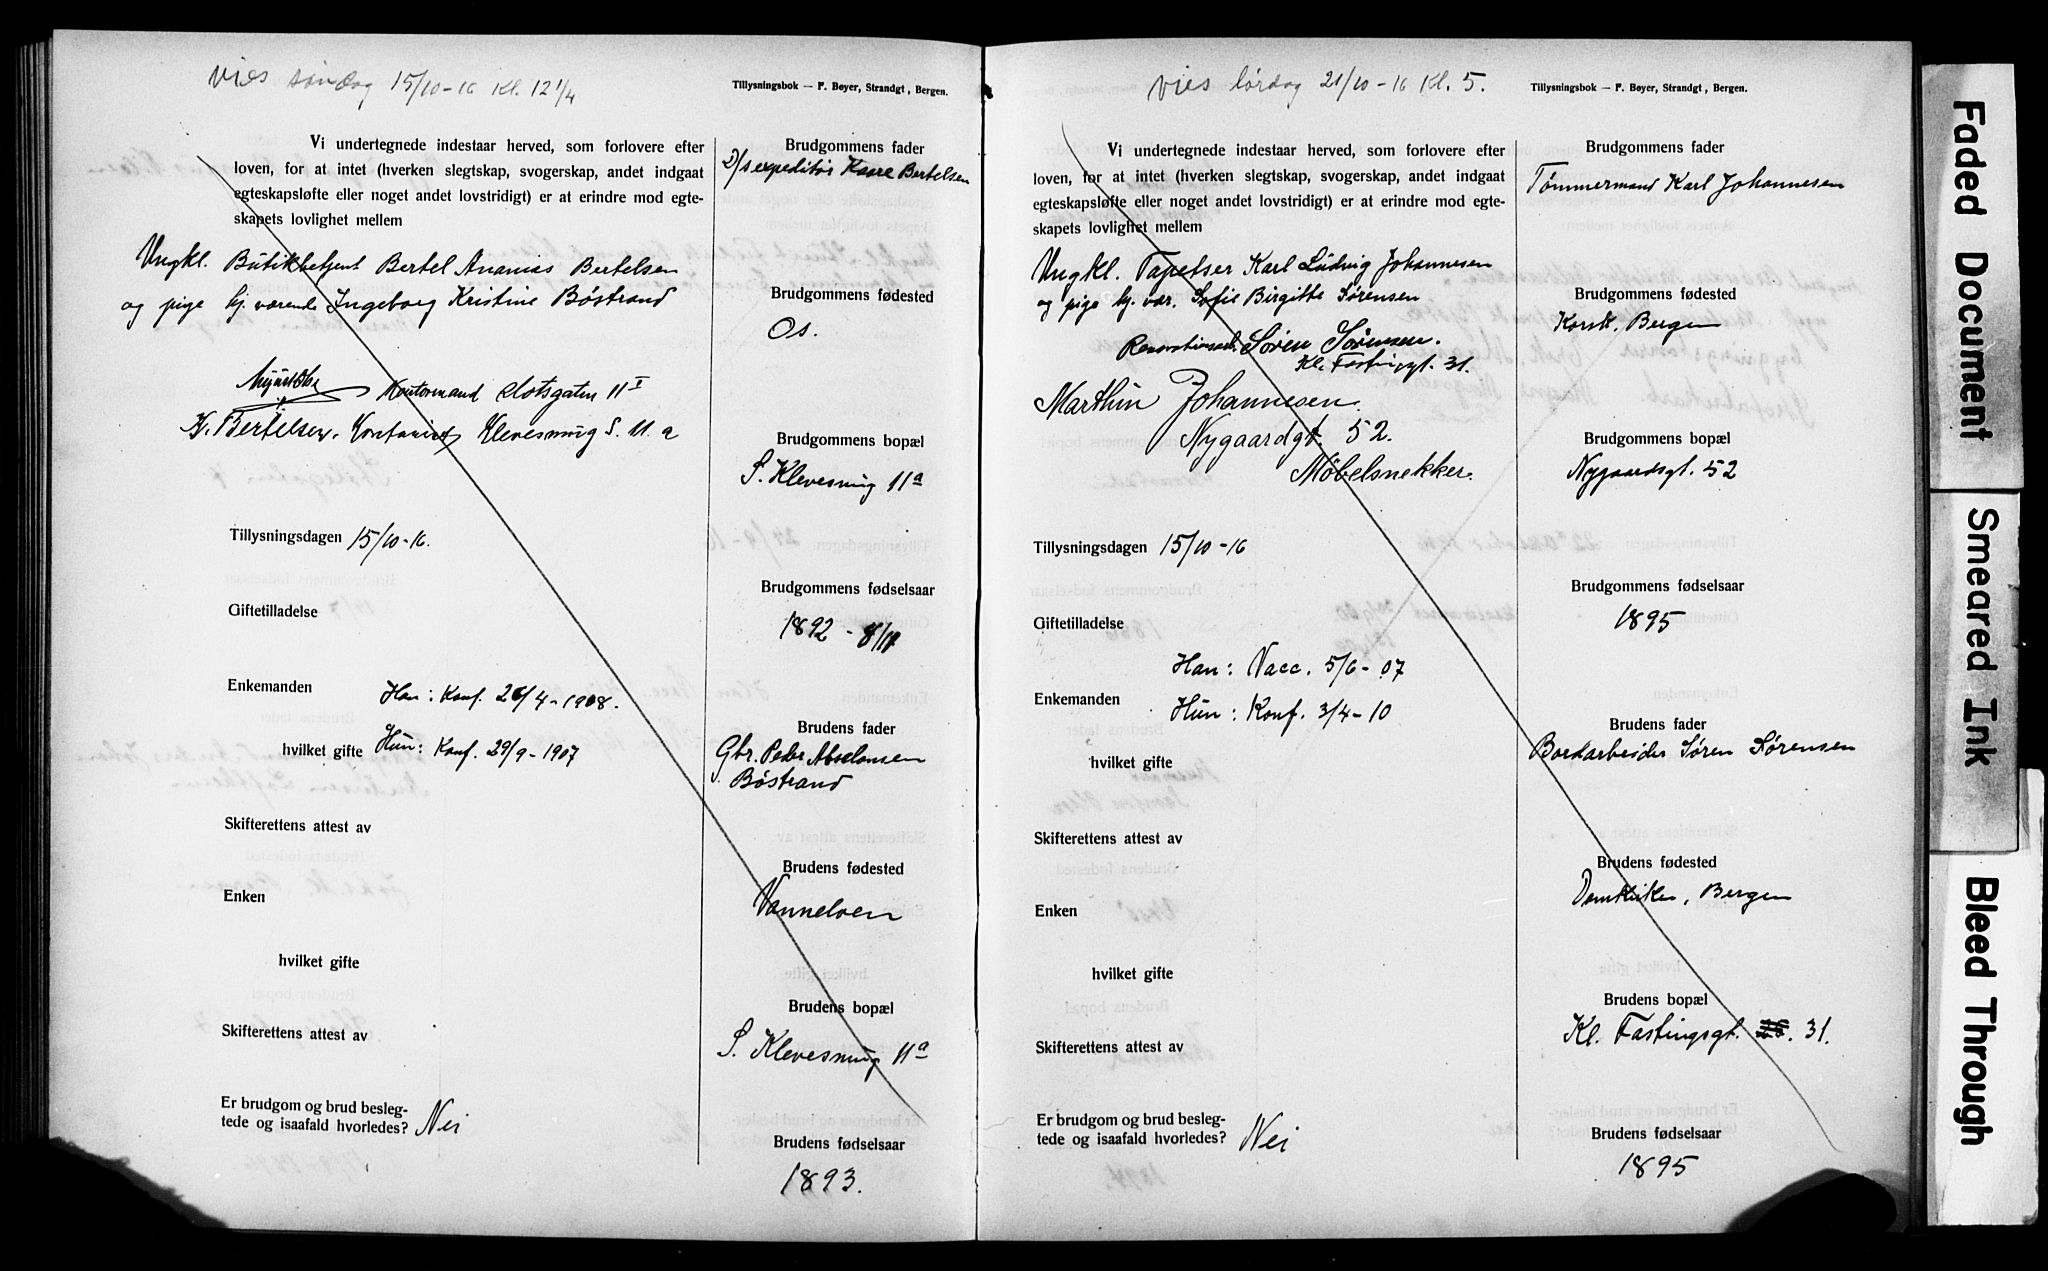 vies søndag 15/10-16 Kl. 12 1/4
Tillysningsbok — F. Bøyer, Strandgt, Bergen.
Vi undertegnede indestaar herved, som forlovere efter
loven, for at intet (hverken slegtskap, svogerskap, andet indgaat
egteskapsløfte eller noget andet lovstridigt) er at erindre mod egte-
skapets lovlighet mellem
Ungkl. Butikbetjent Bertel Ananias Bertelsen
og pige hj. værende Ingeborg Kristine Bøstrand
Kontormand Slotsgaten 11 I
K. Bertelsen. Kontorist Klevesmug S. 11 a
Tillysningsdagen 15/10-16.
Giftetilladelse
Enkemanden Han: Konf. 26/4-1908.
hvilket gifte Hun: Konf. 29/9-1907
Skifterettens attest av
Enken
hvilket gifte
Skifterettens attest av
Er brudgom og brud besleg-
tede og isaafald hvorledes? Nei
Brudgommens fader
D/s expeditør Kaare Bertelsen
Brudgommens fødested
Os.
Brudgommens bopæl
S. Klevesmug 11a
Brudgommens fødselsaar
1892 - 8/11
Brudens fader
Gbr. Peder Absalonsen
Bøstrand
Brudens fødested
Vannelven
Brudens bopæl
S. Klevesmug 11a
Brudens fødselsaar
1893.
vies lørdag 21/10-16 Kl. 5.
Tillysningsbok — F. Bøyer, Strandgt, Bergen.
Vi undertegnede indestaar herved, som forlovere efter
loven, for at intet (hverken slegtskap, svogerskap, andet indgaat
egteskapsløfte eller noget andet lovstridigt) er at erindre mod egte-
skapets lovlighet mellem
Ungkl. Tapetser Karl Ludvig Johannesen
og pige hj. vær. Sofie Birgitte Sørensen
Søren Sørensen.
Kl. Fastingsgt. 31.
Marthin Johannesen.
Nygaardgt. 52.
Møbelsnekker.
Tillysningsdagen 15/10-16
Giftetilladelse
Han: Vacc. 5/6-07
Enkemanden
Hun: Konf. 3/4-10
hvilket gifte
Skifterettens attest av
Enken
hvilket gifte
Skifterettens attest av
Er brudgom og brud besleg-
tede og isaafald hvorledes? Nei
Brudgommens fader
Tømmermand Karl Johannesen
Brudgommens fødested
Korsk. Bergen
Brudgommens bopæl
Nygaardsgt. 52
Brudgommens fødselsaar
1895
Brudens fader
Bordarbeider Søren Sørensen
Brudens fødested
Domkirken, Bergen
Brudens bopæl
Kl. Fastingsgt. 31.
Brudens fødselsaar
1895
Faded Document
Smeared Ink
Bleed Through